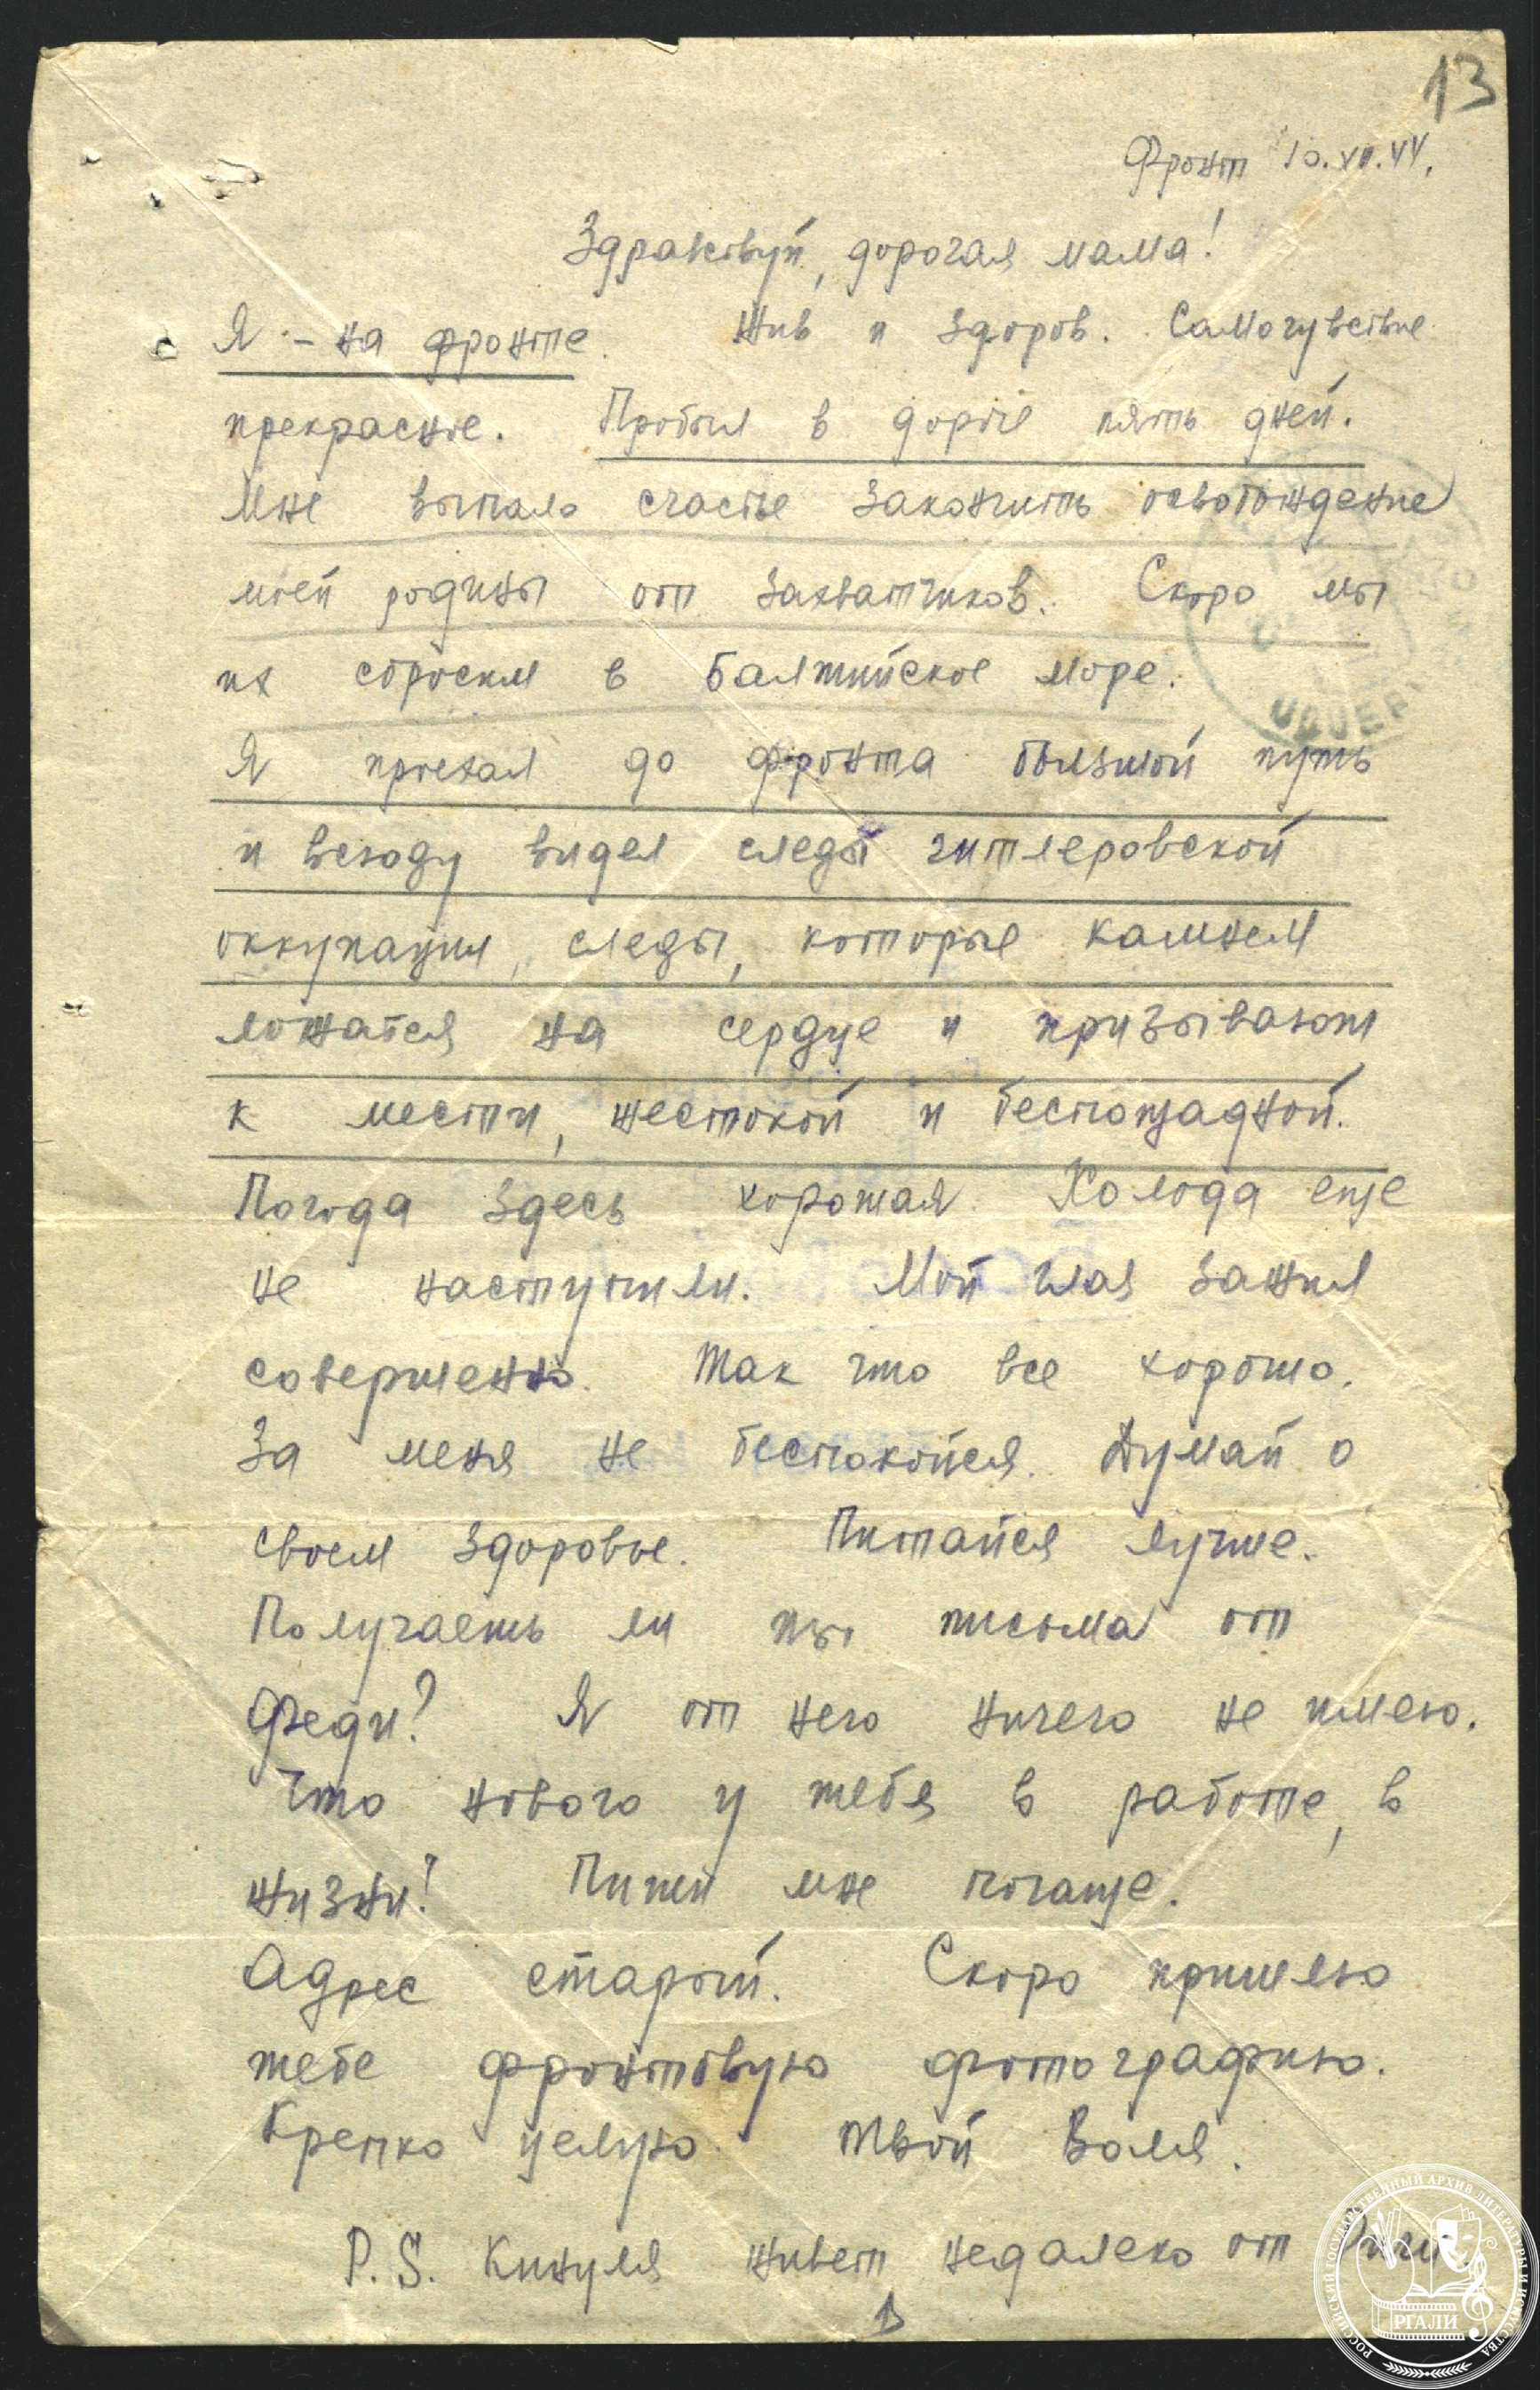 13
Фронт 10.XII.44.
Здравствуй, дорогая мама!
Я – на фронте. Жив и здоров. Самочувствие
прекрасное. Пробыл в дороге пять дней.
Мне выпало счастье закончить освобождение
моей родины от захватчиков. Скоро мы
их сбросим в Балтийское море.
Я проехал до фронта большой путь
и всюду видел следы гитлеровской
оккупации, следы, которые камнем
ложатся на сердце и призывают
к мести, жестокой и беспощадной.
Погода здесь хорошая. Холода еще
не наступили. Мой глаз зажил
совершенно. Так что все хорошо.
За меня не беспокойся. Думай о
своем здоровье. Питайся лучше.
Получаешь ли ты письма от
Феди? Я от него ничего не имею.
Что нового у тебя в работе, в
жизни? Пиши мне почаще.
Адрес старый. Скоро пришлю
тебе фронтовую фотографию.
Крепко целую. Твой Воля.
P.S. Кинуля живет недалеко от Риги
РОССИЙСКИЙ ГОСУДАРСТВЕННЫЙ АРХИВ ЛИТЕРАТУРЫ И ИСКУССТВА
РГАЛИ